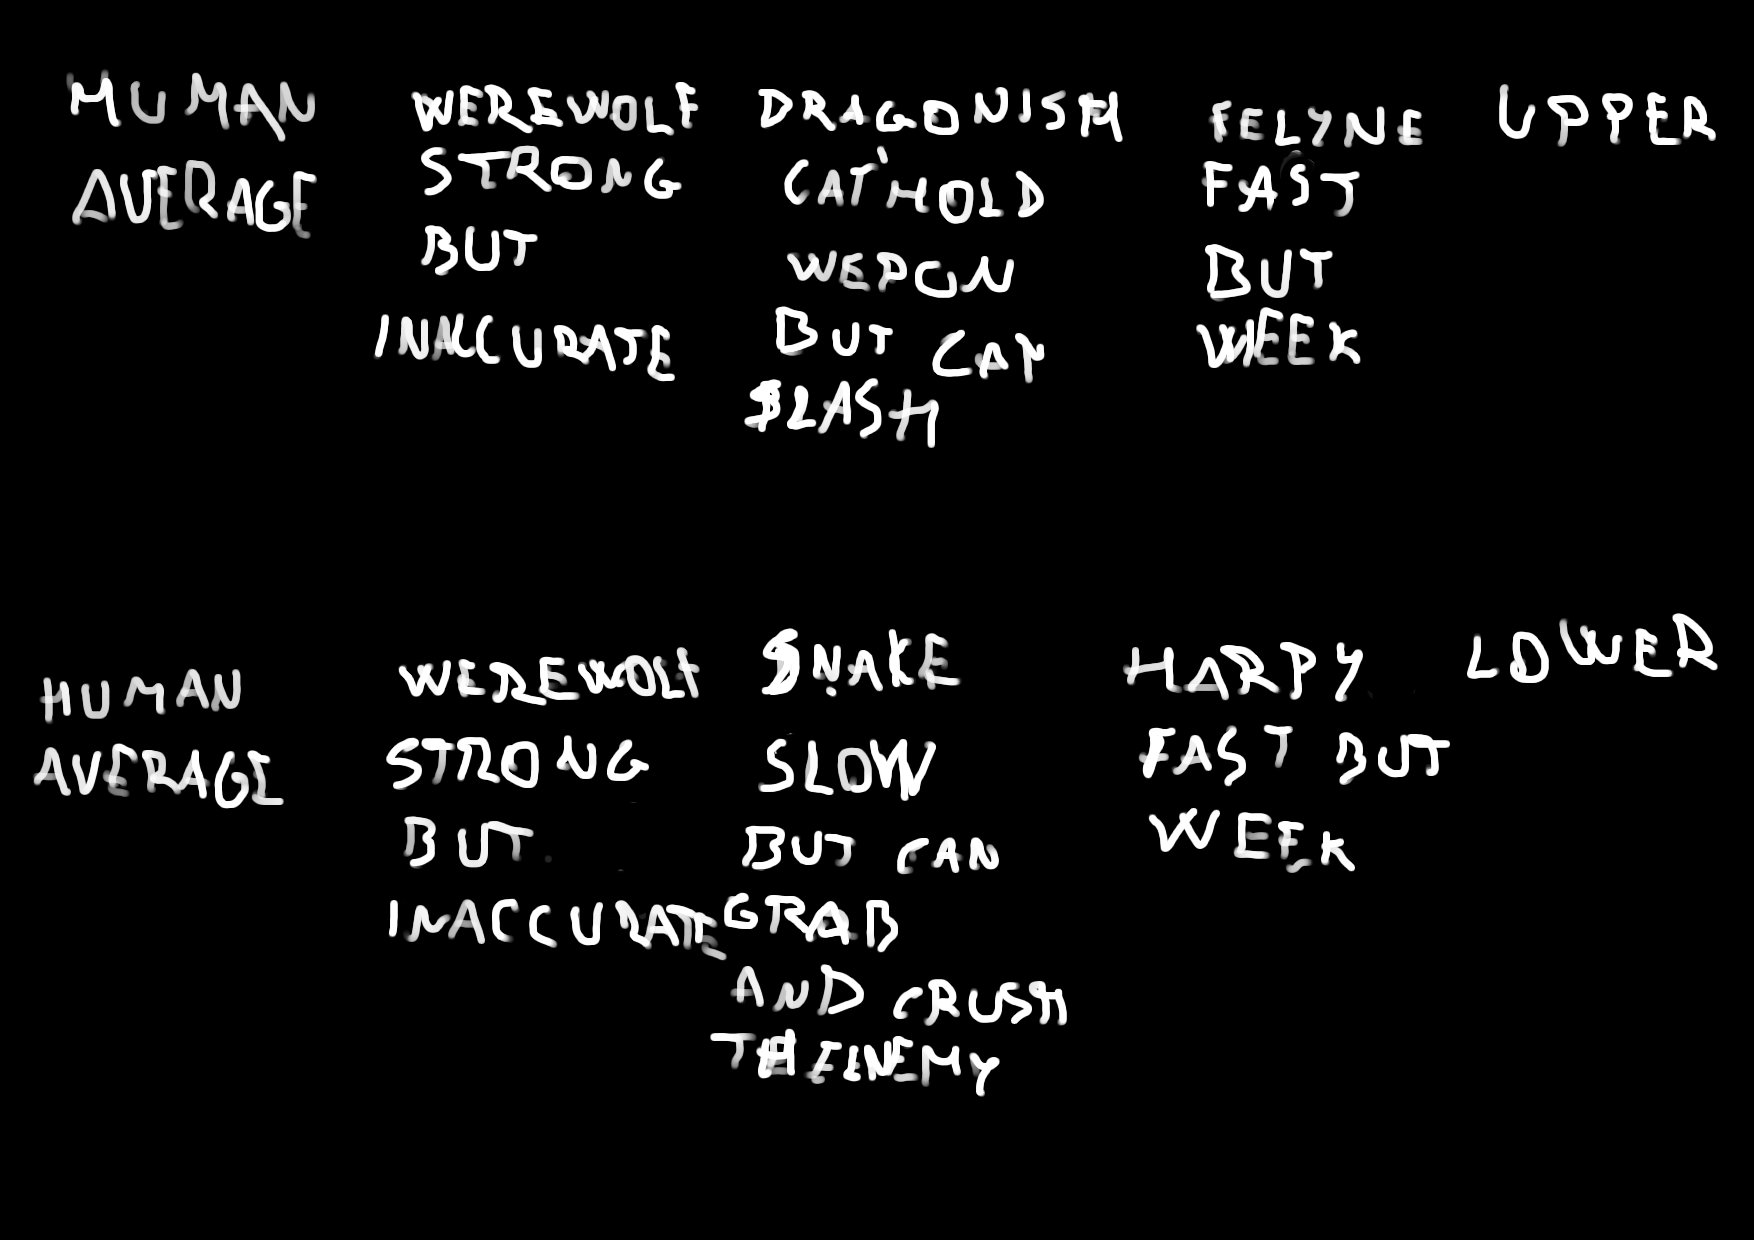 HUMAN
AVERAGE
WEREWOLF
STRONG
BUT
INACCURATE
DRAGONISH
CAT'HOLD
WEPON
BUT CAN
SLASH
FELYNE
FAST
BUT
WEEK
UPPER
HUMAN
AVERAGE
WEREWOLF
STRONG
BUT
INACCURATE
SNAKE
SLOW
BUT CAN
GRAB
AND CRUSH
TH ENEMY
HARPY
FAST BUT
WEEK
LOWER